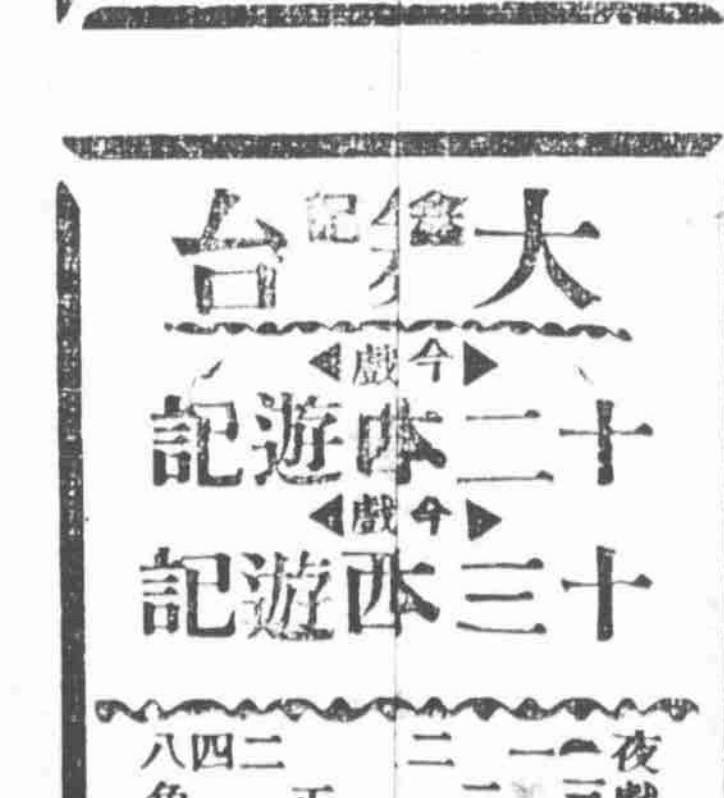 大記台
今戲
十二本西遊記
今戲
十三本西遊記
夜一一二二四八